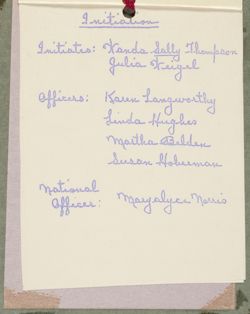 Initiation
Initiates: Wanda Sally Thompson
Julia Weigel
Officers: Karen Langworthy
Linda Hughes
Martha Belden
Susan Hoberman
National
Officer: Maryalyce Norris